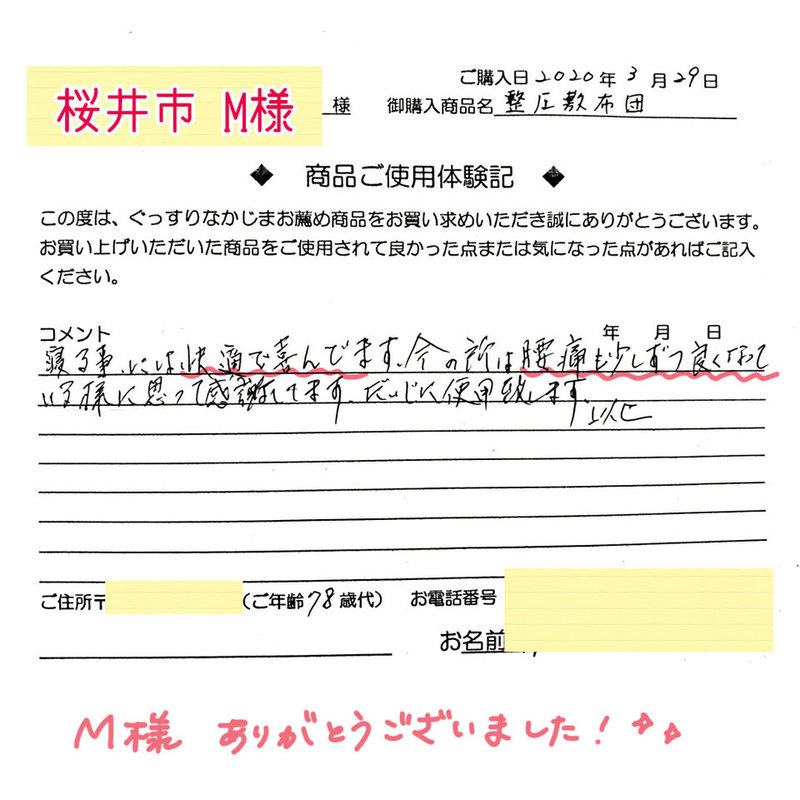 ご購入日2020年3月29日
桜井市 M様
様 御購入商品名 整圧敷布団
◆ 商品ご使用体験記 ◆
この度は、ぐっすりなかじまお薦め商品をお買い求めいただき誠にありがとうございます。
お買い上げいただいた商品をご使用されて良かった点または気になった点があればご記入
ください。
コメント 年 月 日
寝る事には快適で喜んでます、今の所は腰痛も少しずつ良くなって
いる様に思って感謝してます、だいじに使用致します。以上
ご住所〒 (ご年齢78歳代) お電話番号
お名前
M様 ありがとうございました!